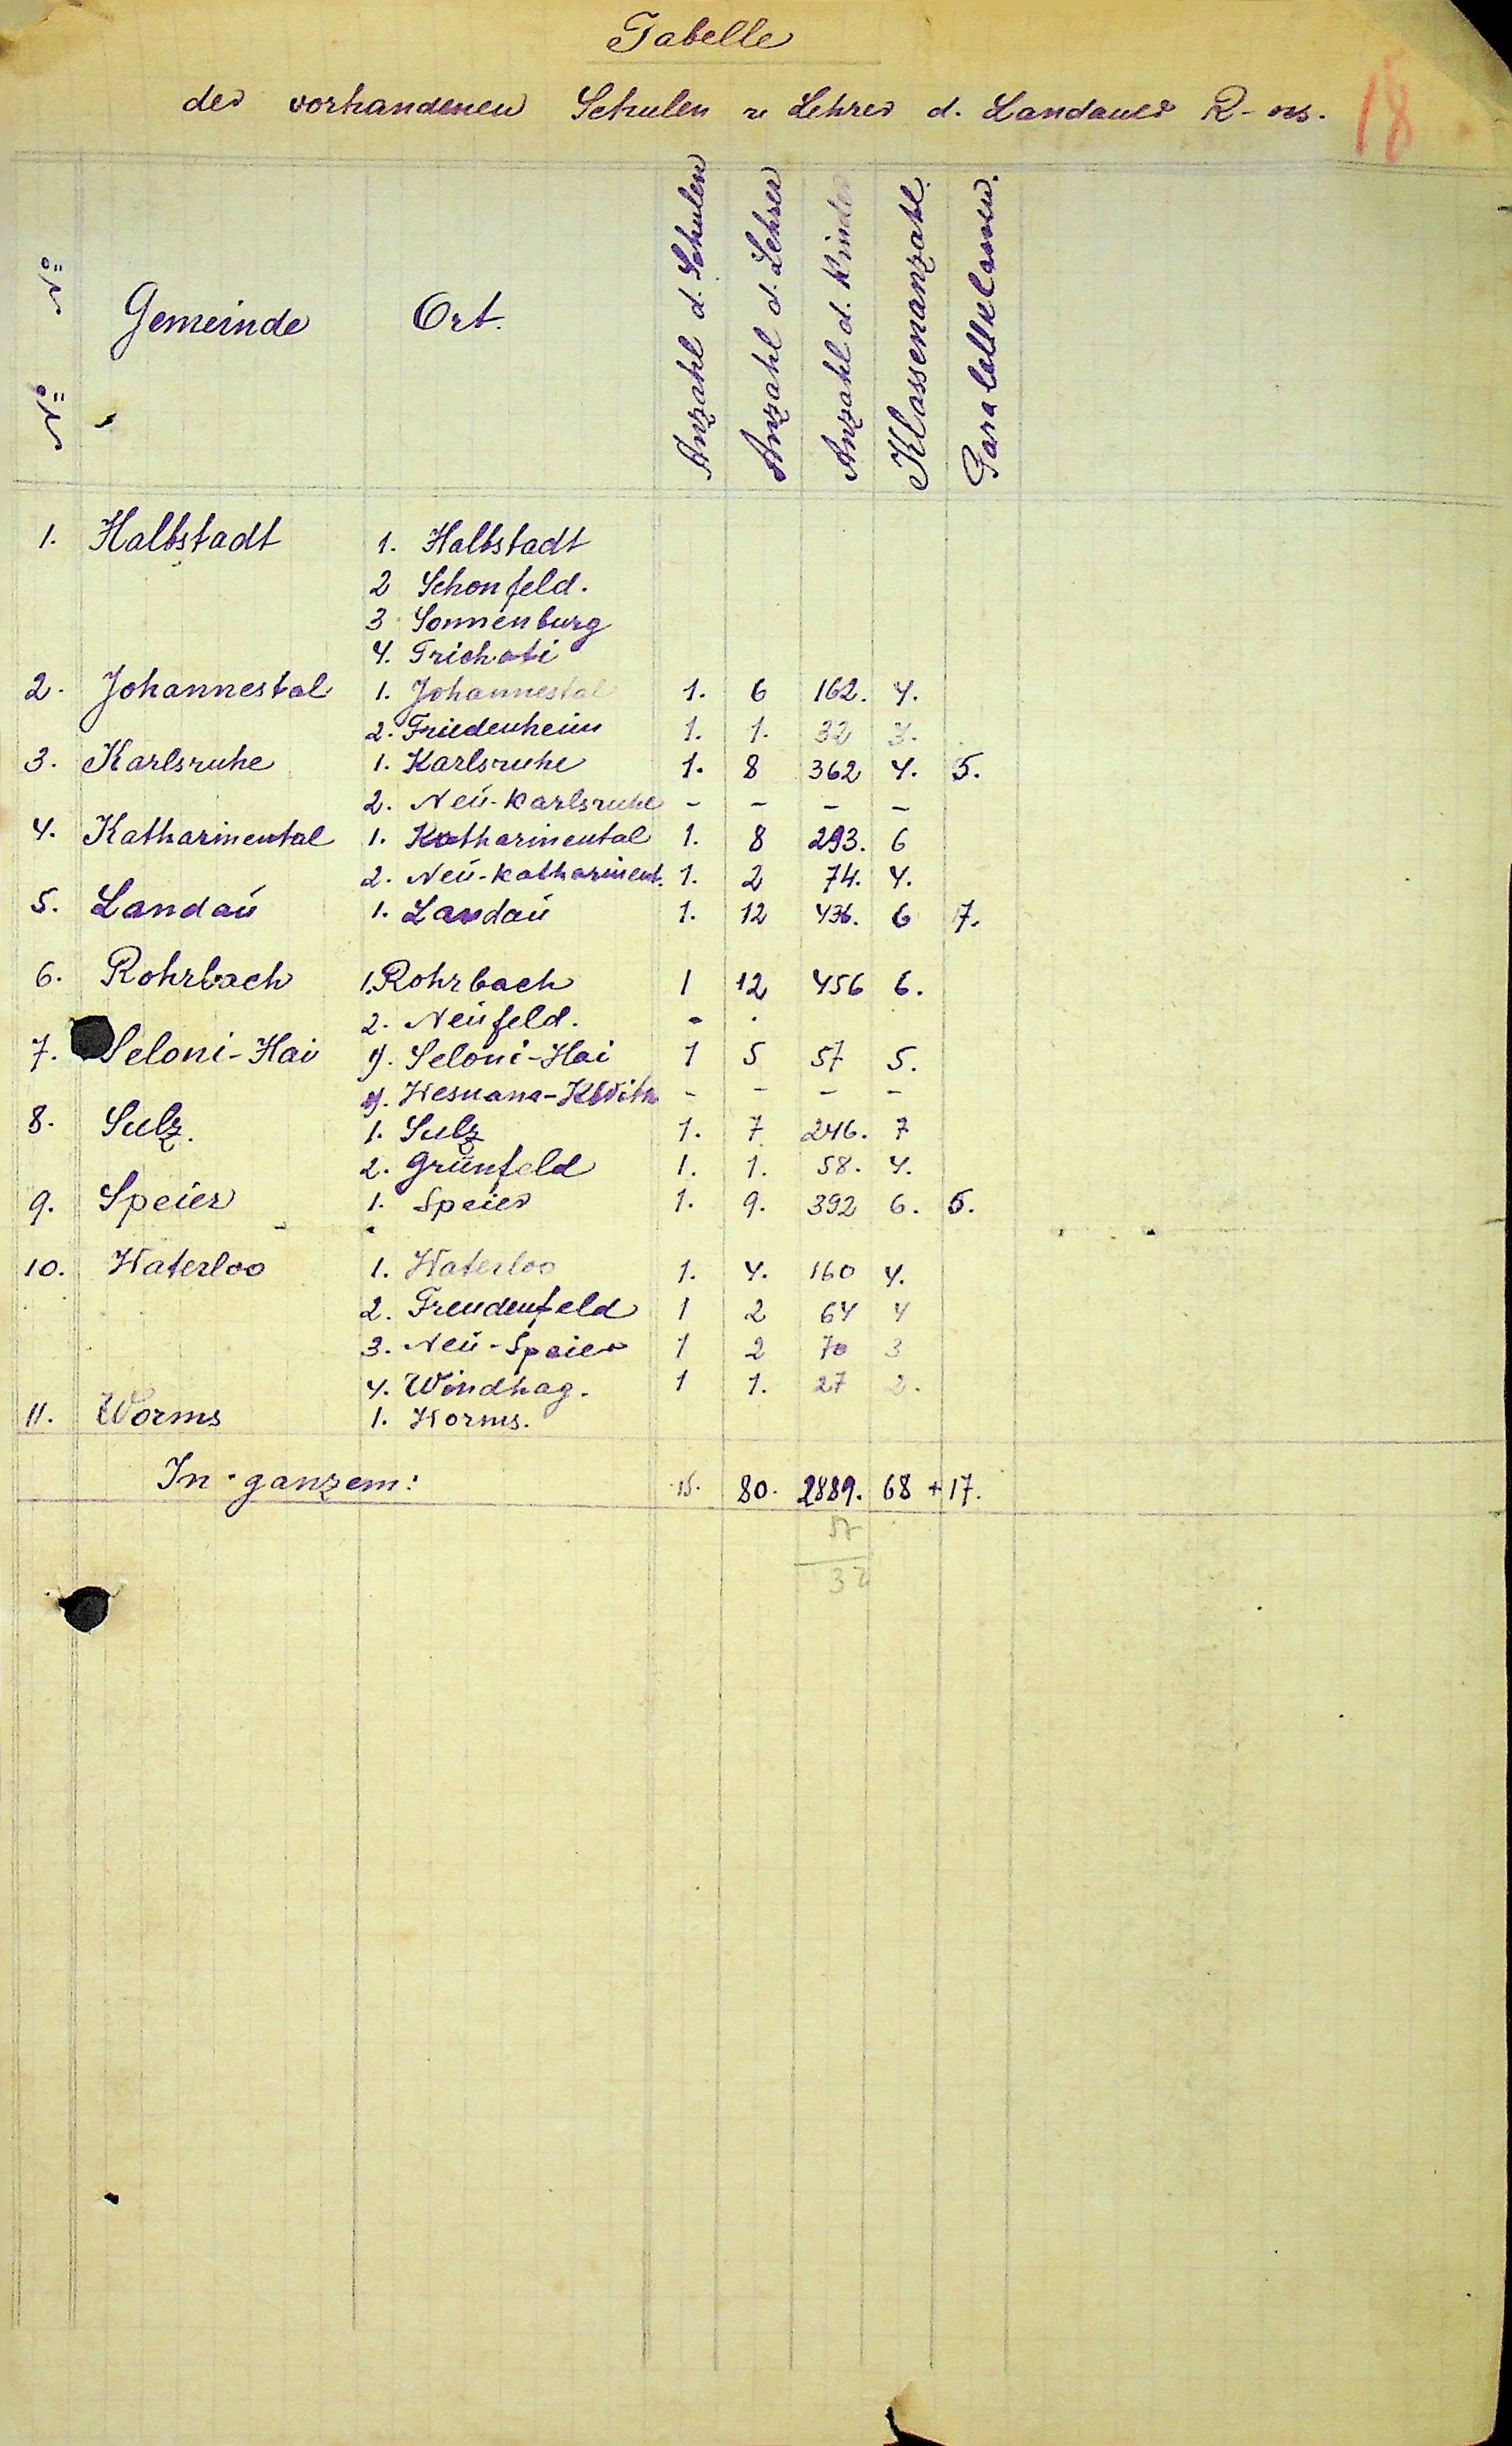 18
Tabelle
der vorhandenen Schulen u Lehrer d. Landauer R-ns.
№ № Gemeinde Ort. Anzahl d. Schulen Anzahl d. Lehrer Anzahl d. Kinder Klassenanzahl. Paralellklassen.
1. Halbstadt 1. Halbstadt
2 Schonfeld.
3 Sonnenburg
4. Trichati
2. Johannestal 1. Johannestal 1. 6 162. 4.
2. Friedenheim 1. 1. 32 3.
3. Karlsruhe 1. Karlsruhe 1. 8 362 4. 5.
2. Neu-Karlsruhe - - - -
4. Katharinental 1. Katharinental 1. 8 293. 6
2. Neu-Katharinent. 1. 2 74. 4.
5. Landau 1. Landau 1. 12 436. 6 7.
6. Rohrbach 1. Rohrbach 1 12 456 6.
2. Neufeld. -
7. Seloni-Hai 1). Seloni-Hai 1 5 57 5.
2). Wesnana-Kwitk - - - -
8. Sulz. 1. Sulz 1. 7 246. 7
2. Grünfeld 1. 1. 58. 4.
9. Speier 1. Speier 1. 9. 392 6. 5.
10. Waterloo 1. Waterloo 1. 4. 160 4.
2. Freudenfeld 1 2 64 4
3. Neu-Speier 1 2 70 3
4. Windhag. 1 1. 27 2.
11. Worms 1. Worms.
In ganzem: 15. 80. 2889. 68 + 17.
57
32